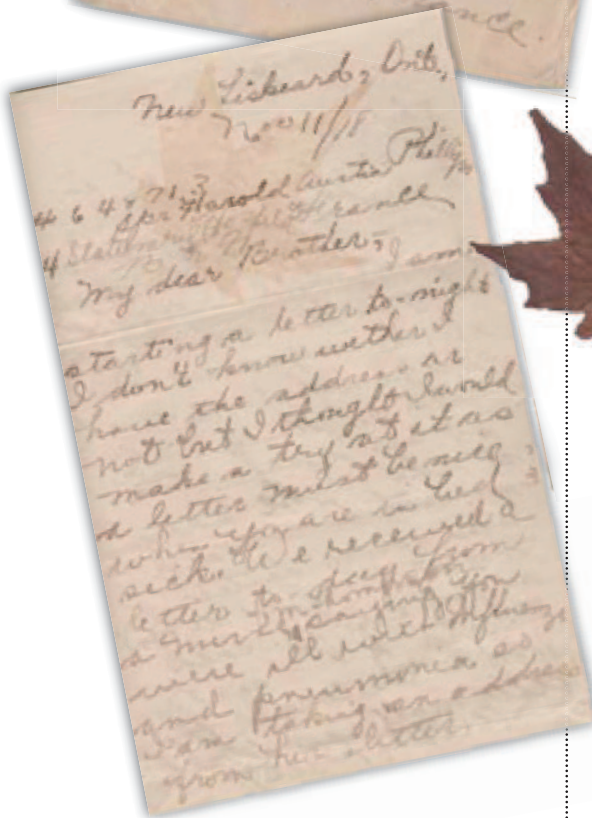 ance.
New Liskeard, Ont.,
Nov 11/18
Spr Harold Austin Phillips
4 Stationary France
My dear Brother,-
I am
starting a letter to-night
I don't know wether I
have the address or
not but I thought I would
make a try at it as
a letter must be nice
when you are in bed
sick. We received a
letter to day from
a nurse saying you
were ill with Influenza
and pneumonia so
I am taking an address
from her letter